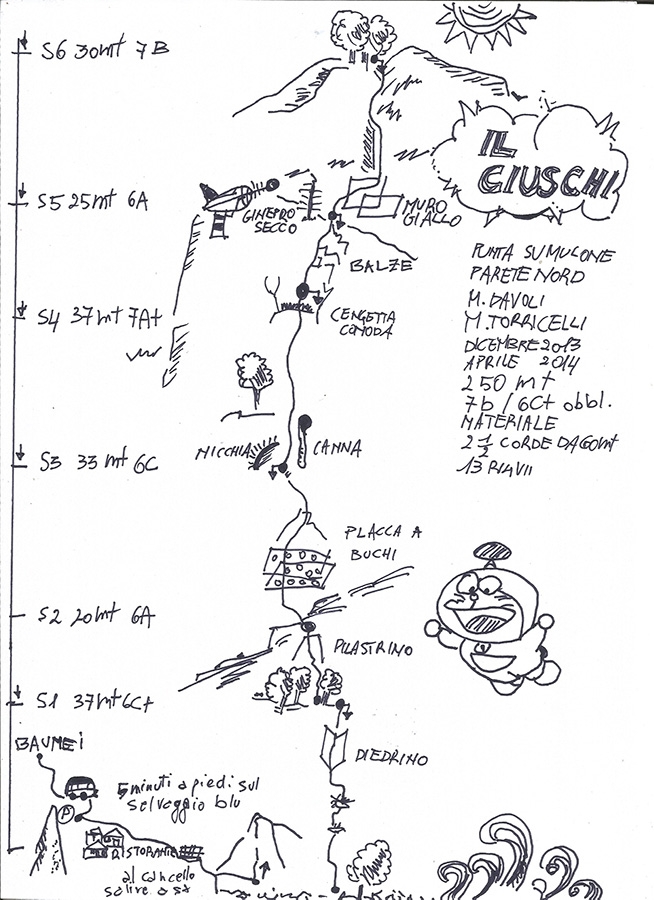 S6 30mt 7B
IL
GIUSCHI
S5 25mt 6A
GINEPRO
SECCO
MURO
GIALLO
BALZE
S4 37mt 7A+
CENGETTA
COMODA
PUNTA SUMULONE
PARETE NORD
M. DAVOLI
M. TORRICELLI
DICEMBRE 2013
APRILE 2014
250 mt
7b / 6C+ obbl.
MATERIALE
2 1/2 CORDE DA 60mt
13 RIAVII
S3 33 mt 6C
NICCHIA
CANNA
PLACCA A
BUCHI
S2 20mt 6A
PILASTRINO
S1 37mt 6C+
DIEDRINO
BAUNEI
5 minuti a piedi sul
selvaggio blu
P
RISTORANTE
al cancello
salire a sx